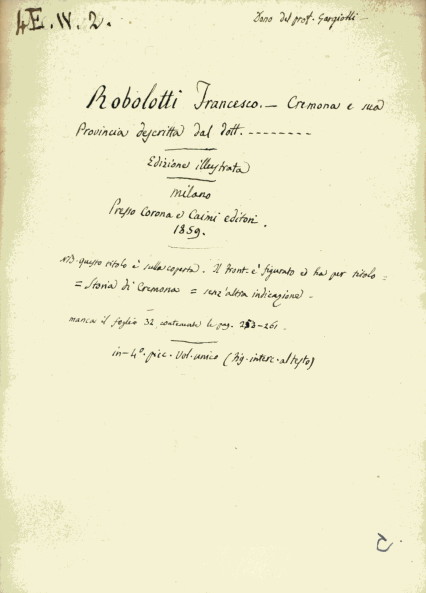 4E.IV.2.
Dono del prof. Gargiolli
Robolotti Francesco. — Cremona e sua
Provincia descritta dal dott. --------
Edizione illustrata
Milano
Presso Corona e Caimi editori.
1859.
NB. questo titolo è sulla coperta. Il front. è figurato ed ha per titolo =
= Storia di Cremona = senz'altra indicazione -
manca il foglio 32, contenente le pag. 253-261.
in-4°. picc. vol. unico (fig. interc. al testo)